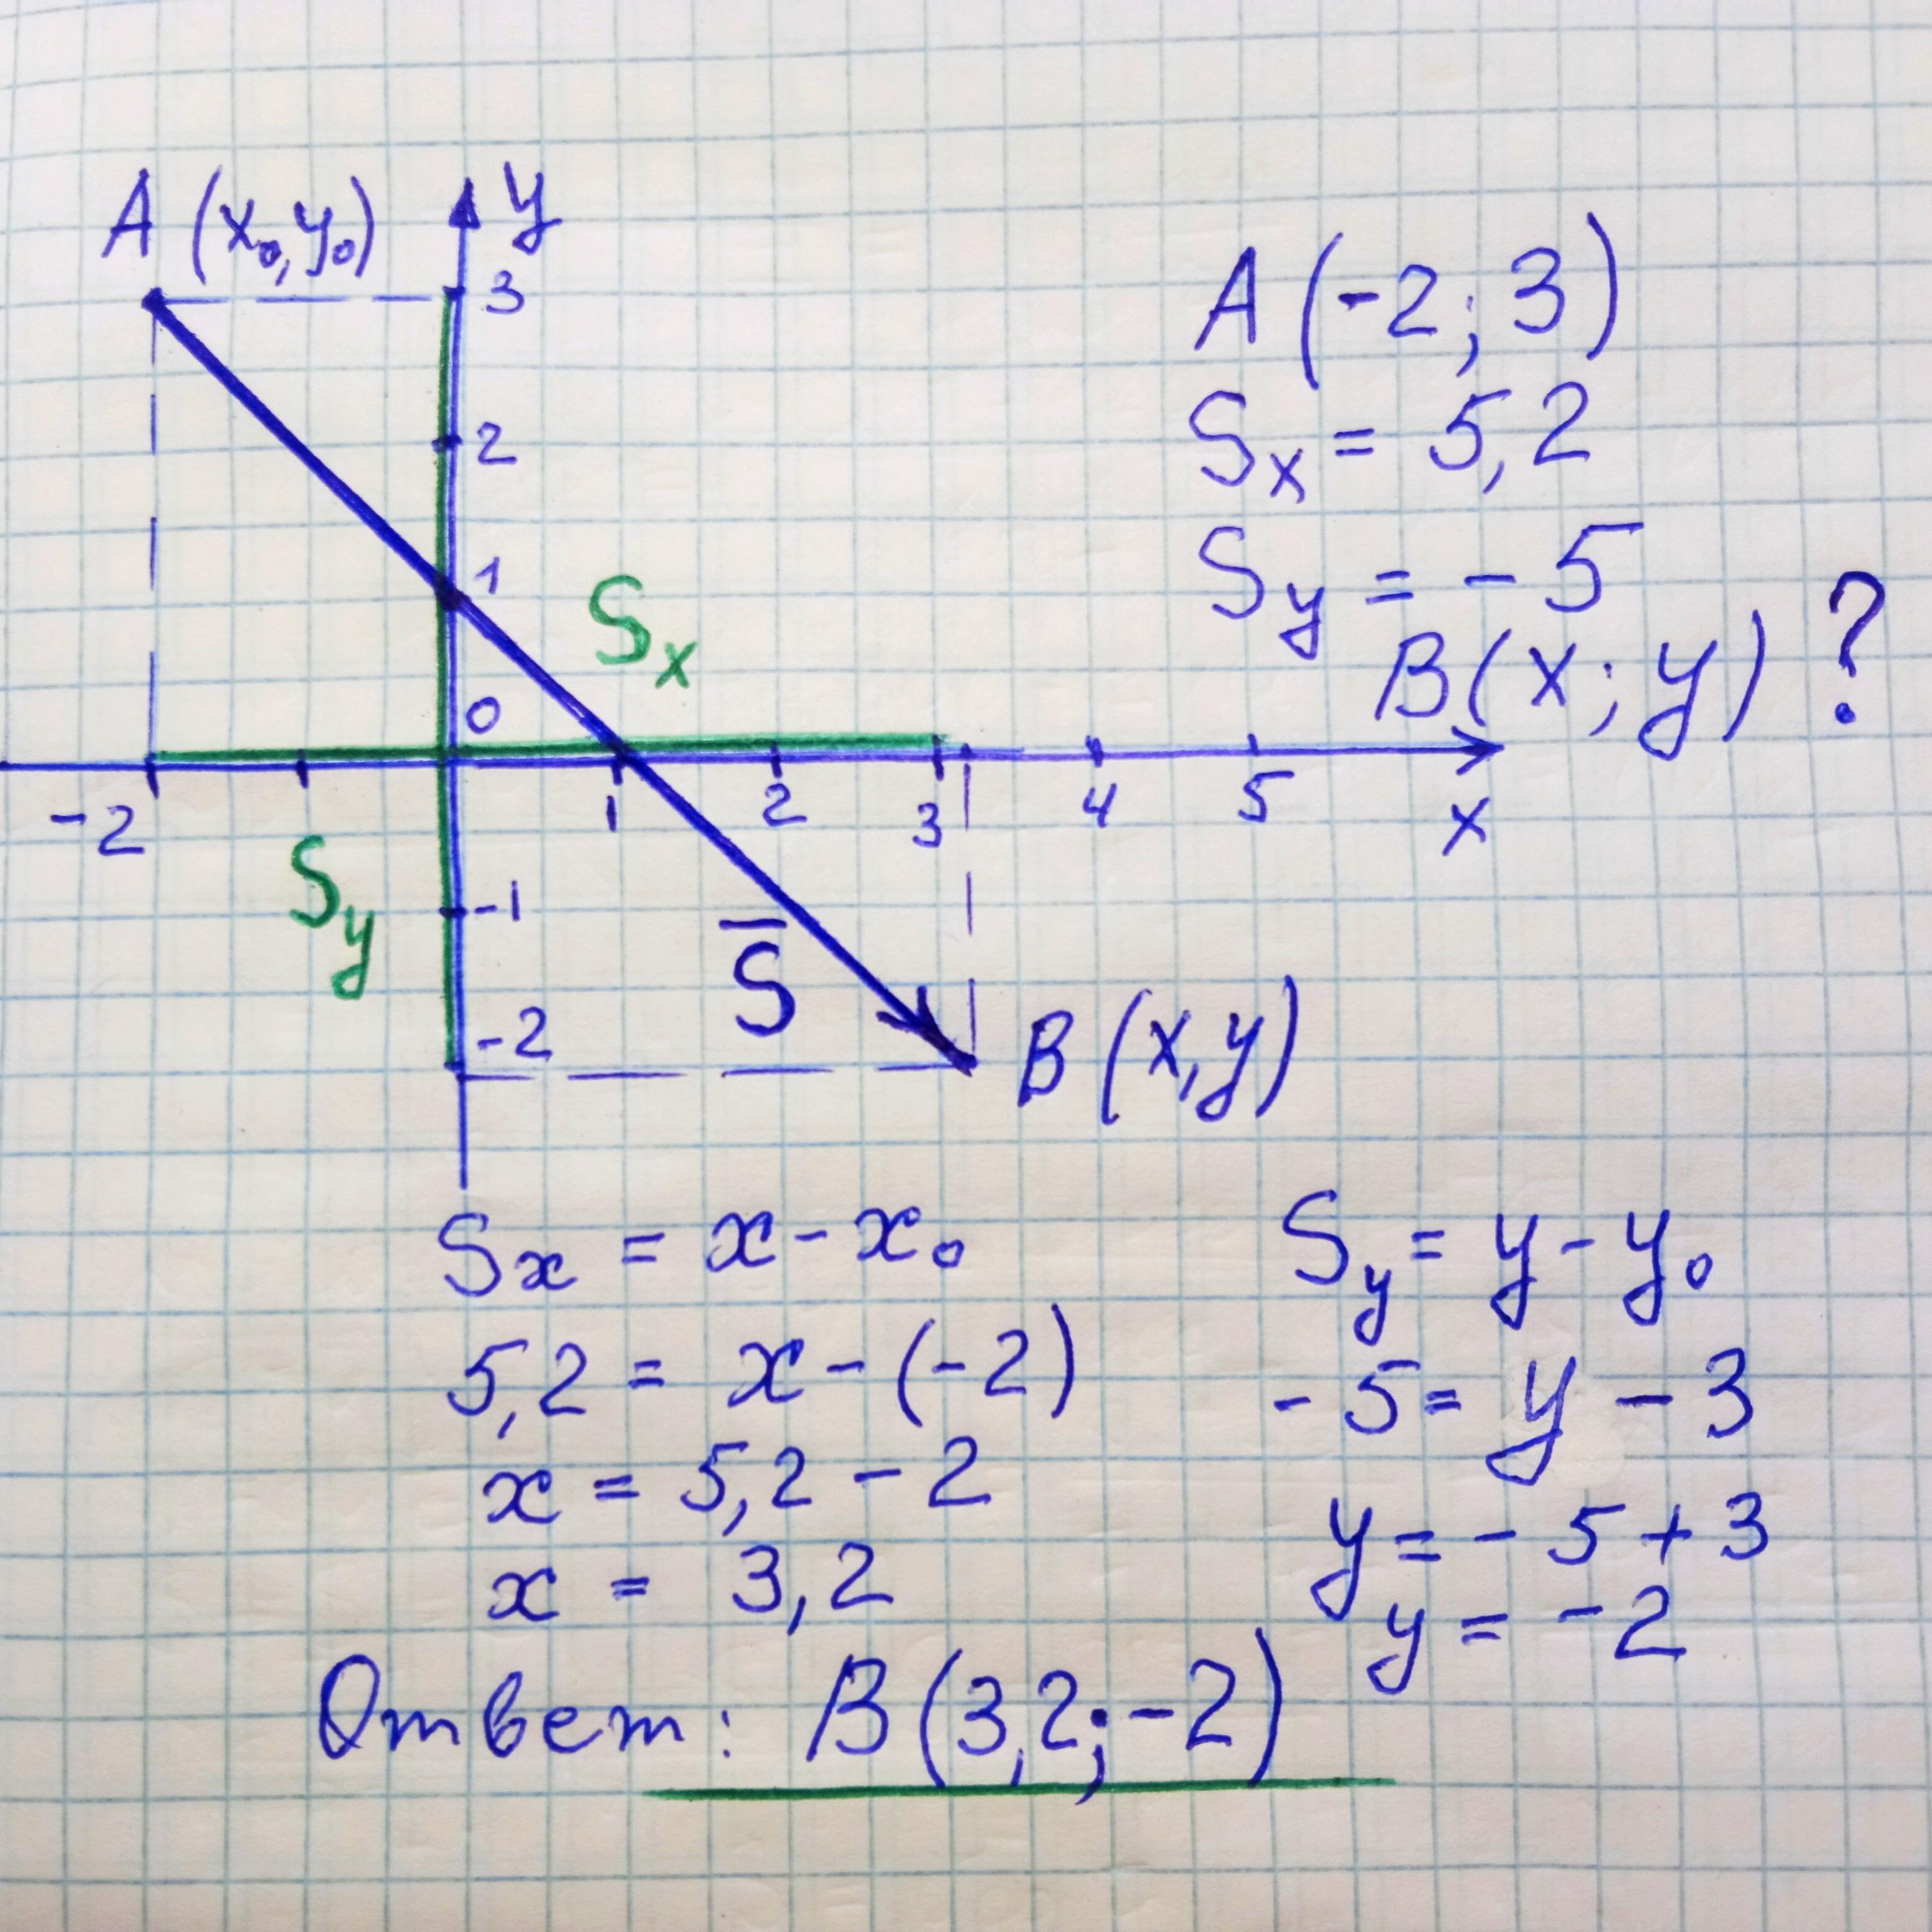 A (x₀, y₀)
y
3
2
1
0
-2
1
2
3
4
5
x
-1
-2
Sx
Sy
S̅
B (x, y)
A (-2; 3)
Sx = 5,2
Sy = -5
B(x; y) ?
Sx = x - x₀
5,2 = x - (-2)
x = 5,2 - 2
x = 3,2
Sy = y - y₀
-5 = y - 3
y = -5 + 3
y = -2
Ответ: B(3,2; -2)